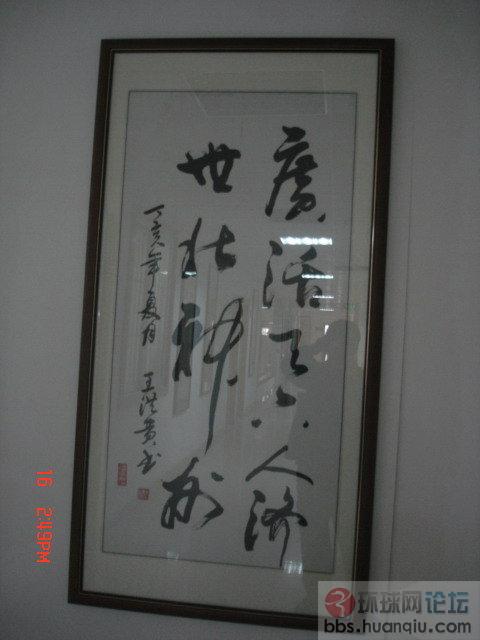 廣活天下人济
世壮神州
丁亥年夏月 王洪贵书
16 2:49PM
环球网论坛
bbs.huanqiu.com